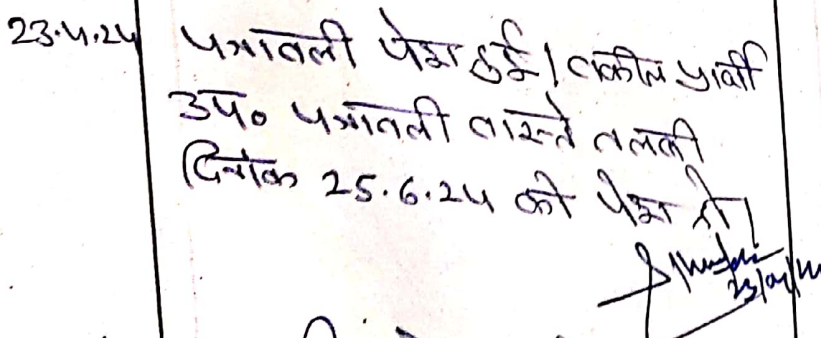 23.4.24 पत्रावली पेश हुई। वकील प्रार्थी
उप० पत्रावली वास्ते तलबी
दिनांक 25.6.24 को पेश हो।
23/04/24